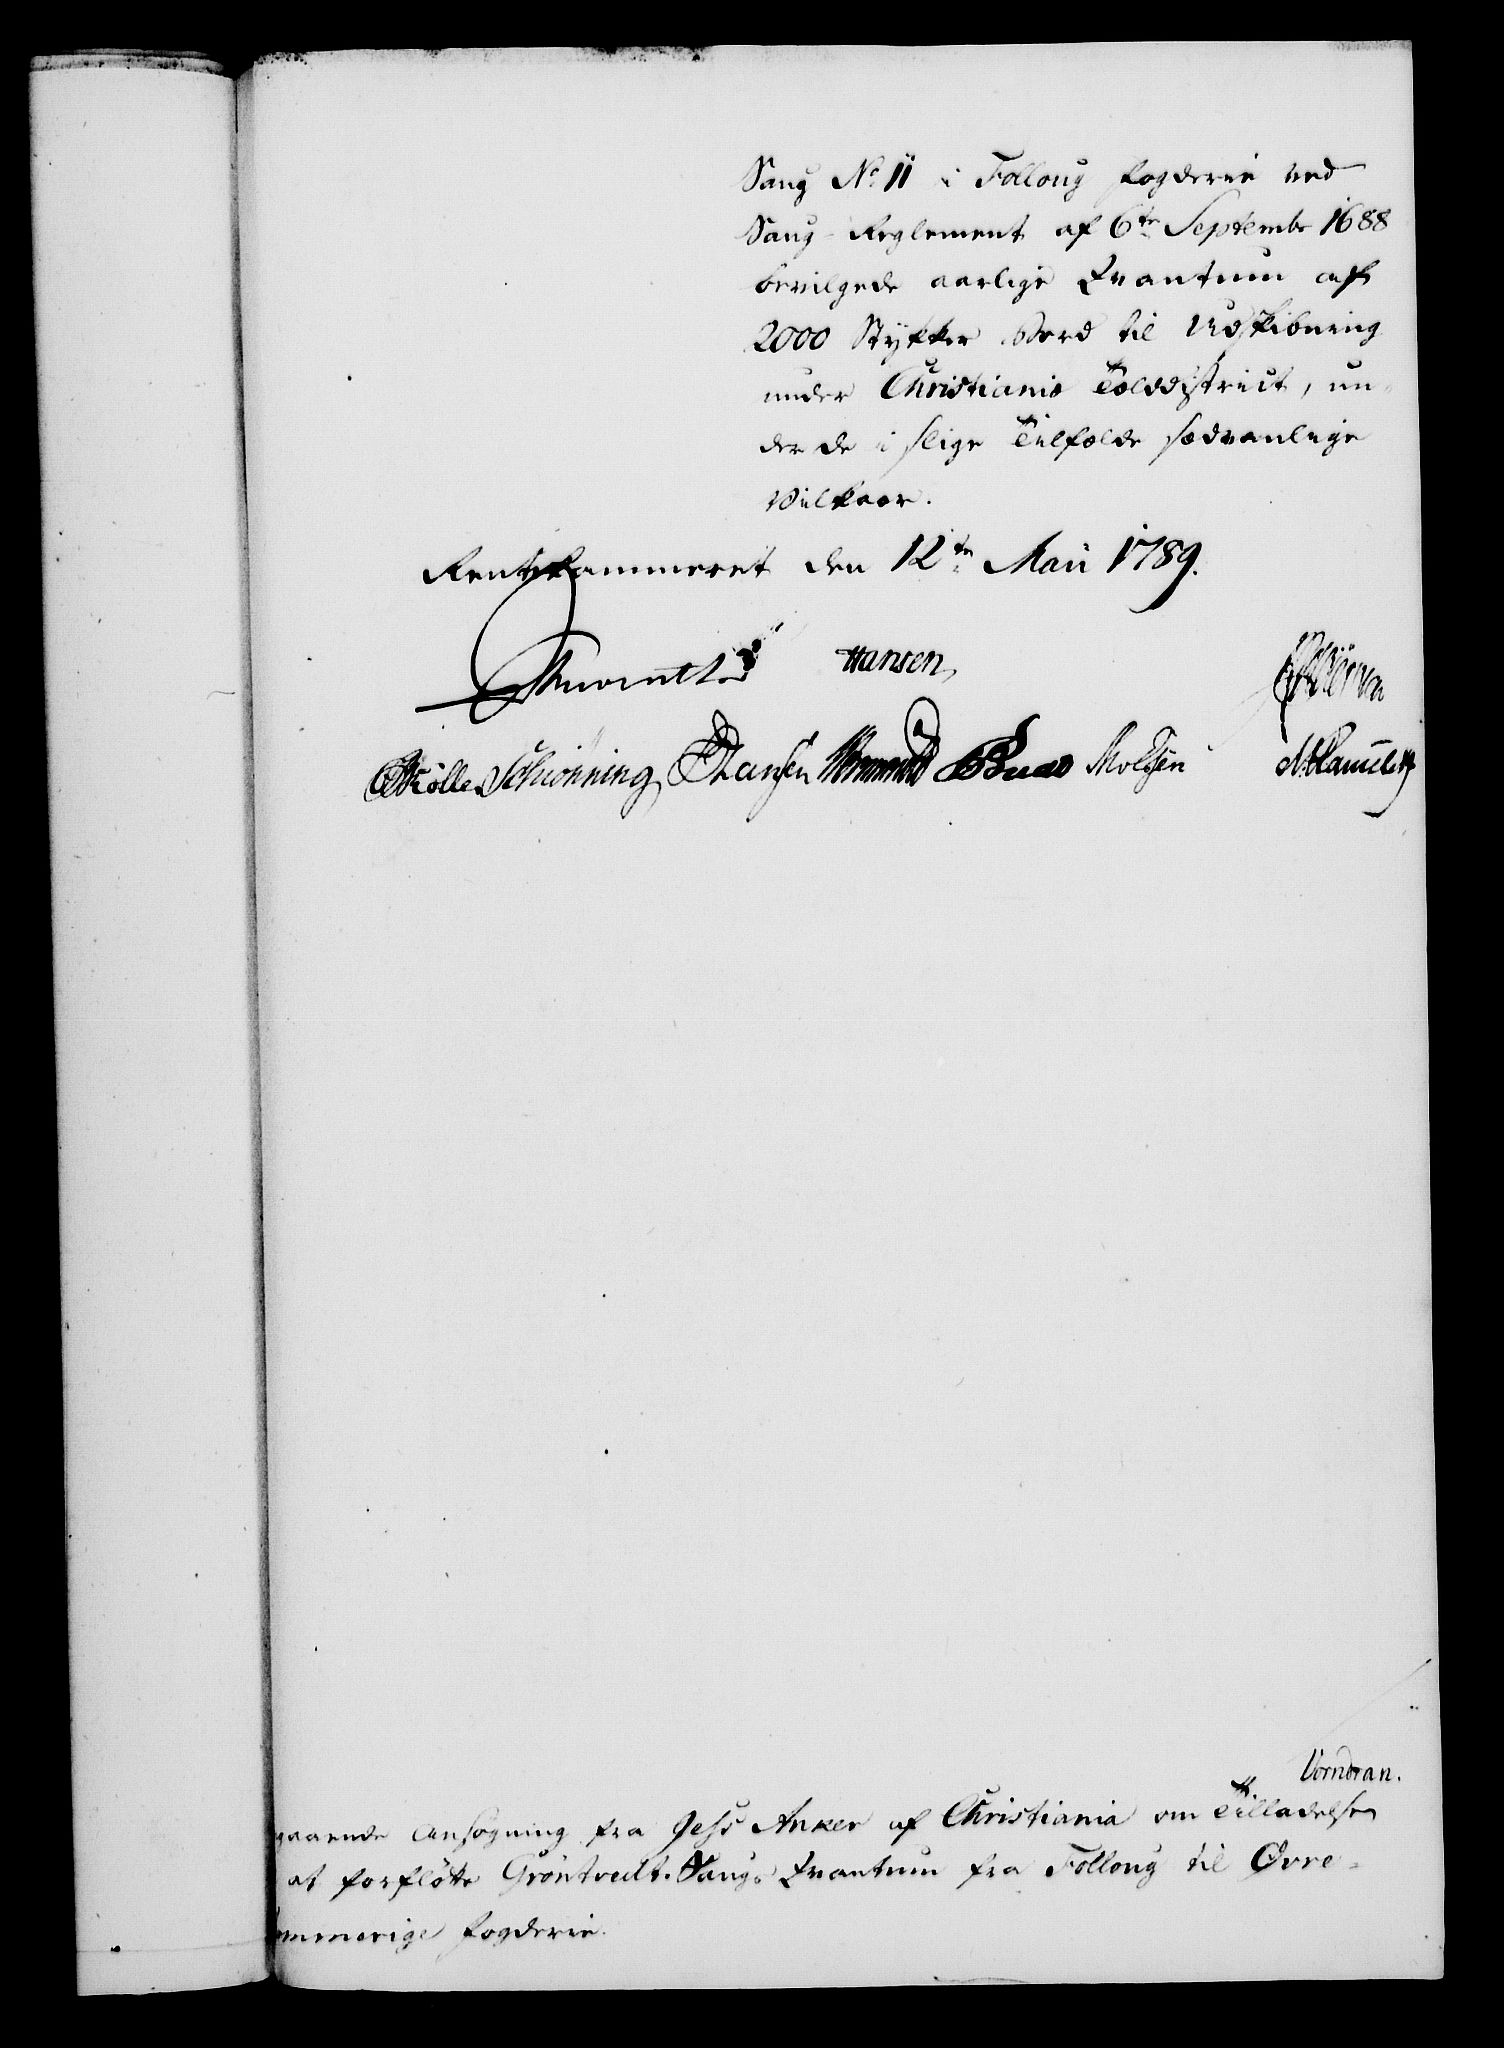 Saug No 11 i Folloug Fogderie ved
Saug-Reglement af 6te Septembr 1688
bevilgede aarlige Qvantum af
2000 Stykker Bord til Udskibning
under Christianiæ Tolddistrict, un-
der de i slige Tilfælde sædvanlige
Vilkaar.
Rentekammeret den 12te Maii 1789.
Hansen
Schiønning Hansen Moldsen
Vorndran.
gaaende Ansøgning fra Jess Anker af Christiania om Tilladelse
at forflötte Gröntvedt-Saugs Qvantum fra Folloug til Øvre-
ommerige Fogderie.